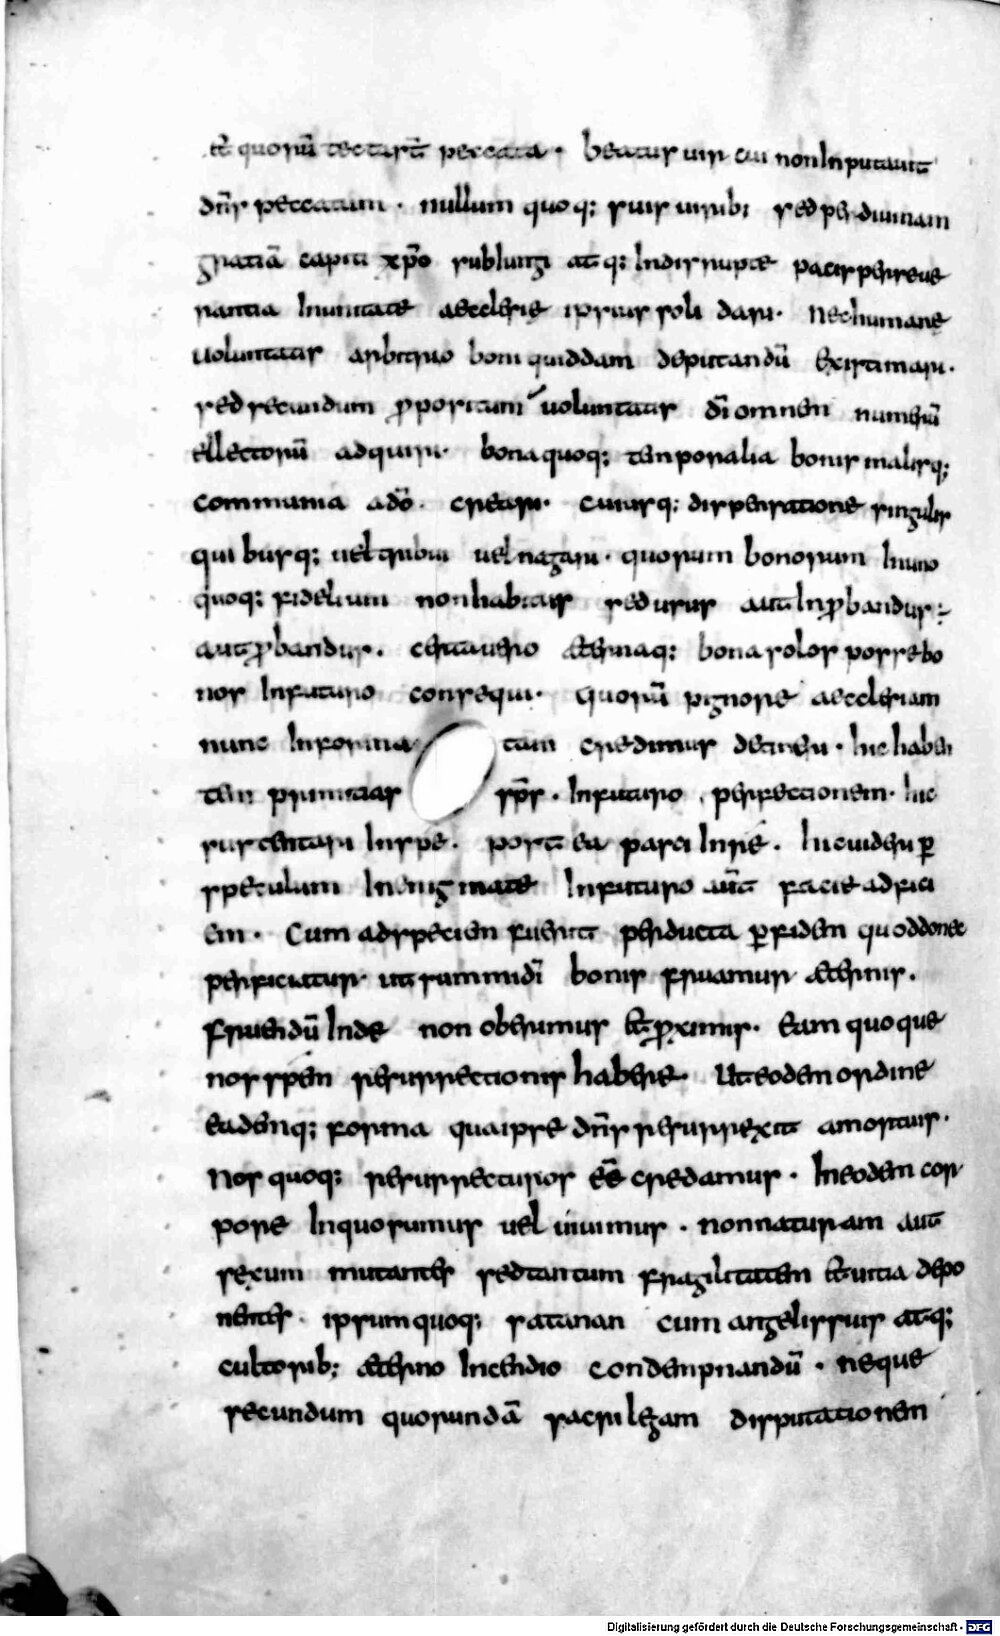 et̄ quorū tecta st̄ peccata · beatus uir cui non inputauit
dn̄s peccatum · nullum quoq; suis uirib; sed per diuinam
gratiā capiti xp̄o subiungi atq; indisrupte pacis perseue
rantia in unitate aecclesie ipsius soli dari · nec humane
uoluntatis arbitrio boni quiddam deputandū existimari ·
sed secundum p̄positum uoluntatis dī omnem numerū
ellectorū adquiri · bona quoq; temporalia bonis malisq;
communia a dō · creari · eiusq; dispensatione singulis
quibusq; uel tribui uel negari · quorum bonorum in uno
quoq; fidelium non habitus sed usus aut inp̄bandus ·
aut p̄bandus · certa uero aeternaq; bona solos posse bo
nos in futuro consequi · quorū pignore aecclesiam
nunc informa tam credimus detineri · hic haben
tem primitias sp̄s · in futuro perfectionem · hic
sustentari in spe · postea pasci in re · hic uideri p̄
speculum in enigmate in futuro aūt facie ad faci
em · Cum ad speciem fuerit perducta p̄ fidem quod donec
perficiatur · ut summi dī bonis fruamur aeternis ·
fruendū inde non oberimus et p̄ximis · Eam quoque
nos spem resurrectionis habere · Ut eodem ordine
eademq; forma qua ipse dn̄s resurrexit a mortuis ·
Nos quoq; resurrecturos eē credamus · In eodem cor
pore in quo sumus uel uiuimus · non naturam aut
sexum mutantes sed tantum fragilitatem et uitia depo
nentes · ipsum quoq; satanan cum angelis suis atq;
cultorib; aeterno incendio condempnandū · neque
secundum quorundā sacrilegam disputationem
Digitalisierung gefördert durch die Deutsche Forschungsgemeinschaft - DFG